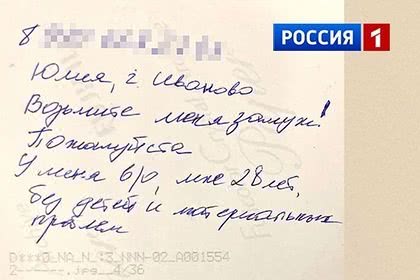 8
РОССИЯ 1
Юлия, г. Иваново
Возьмите меня замуж!
Пожалуйста
У меня в/о, мне 28 лет,
без детей и материальных
проблем
D***0_NA_N_*3_NNN-02_A001554
.jpg_ 4/36